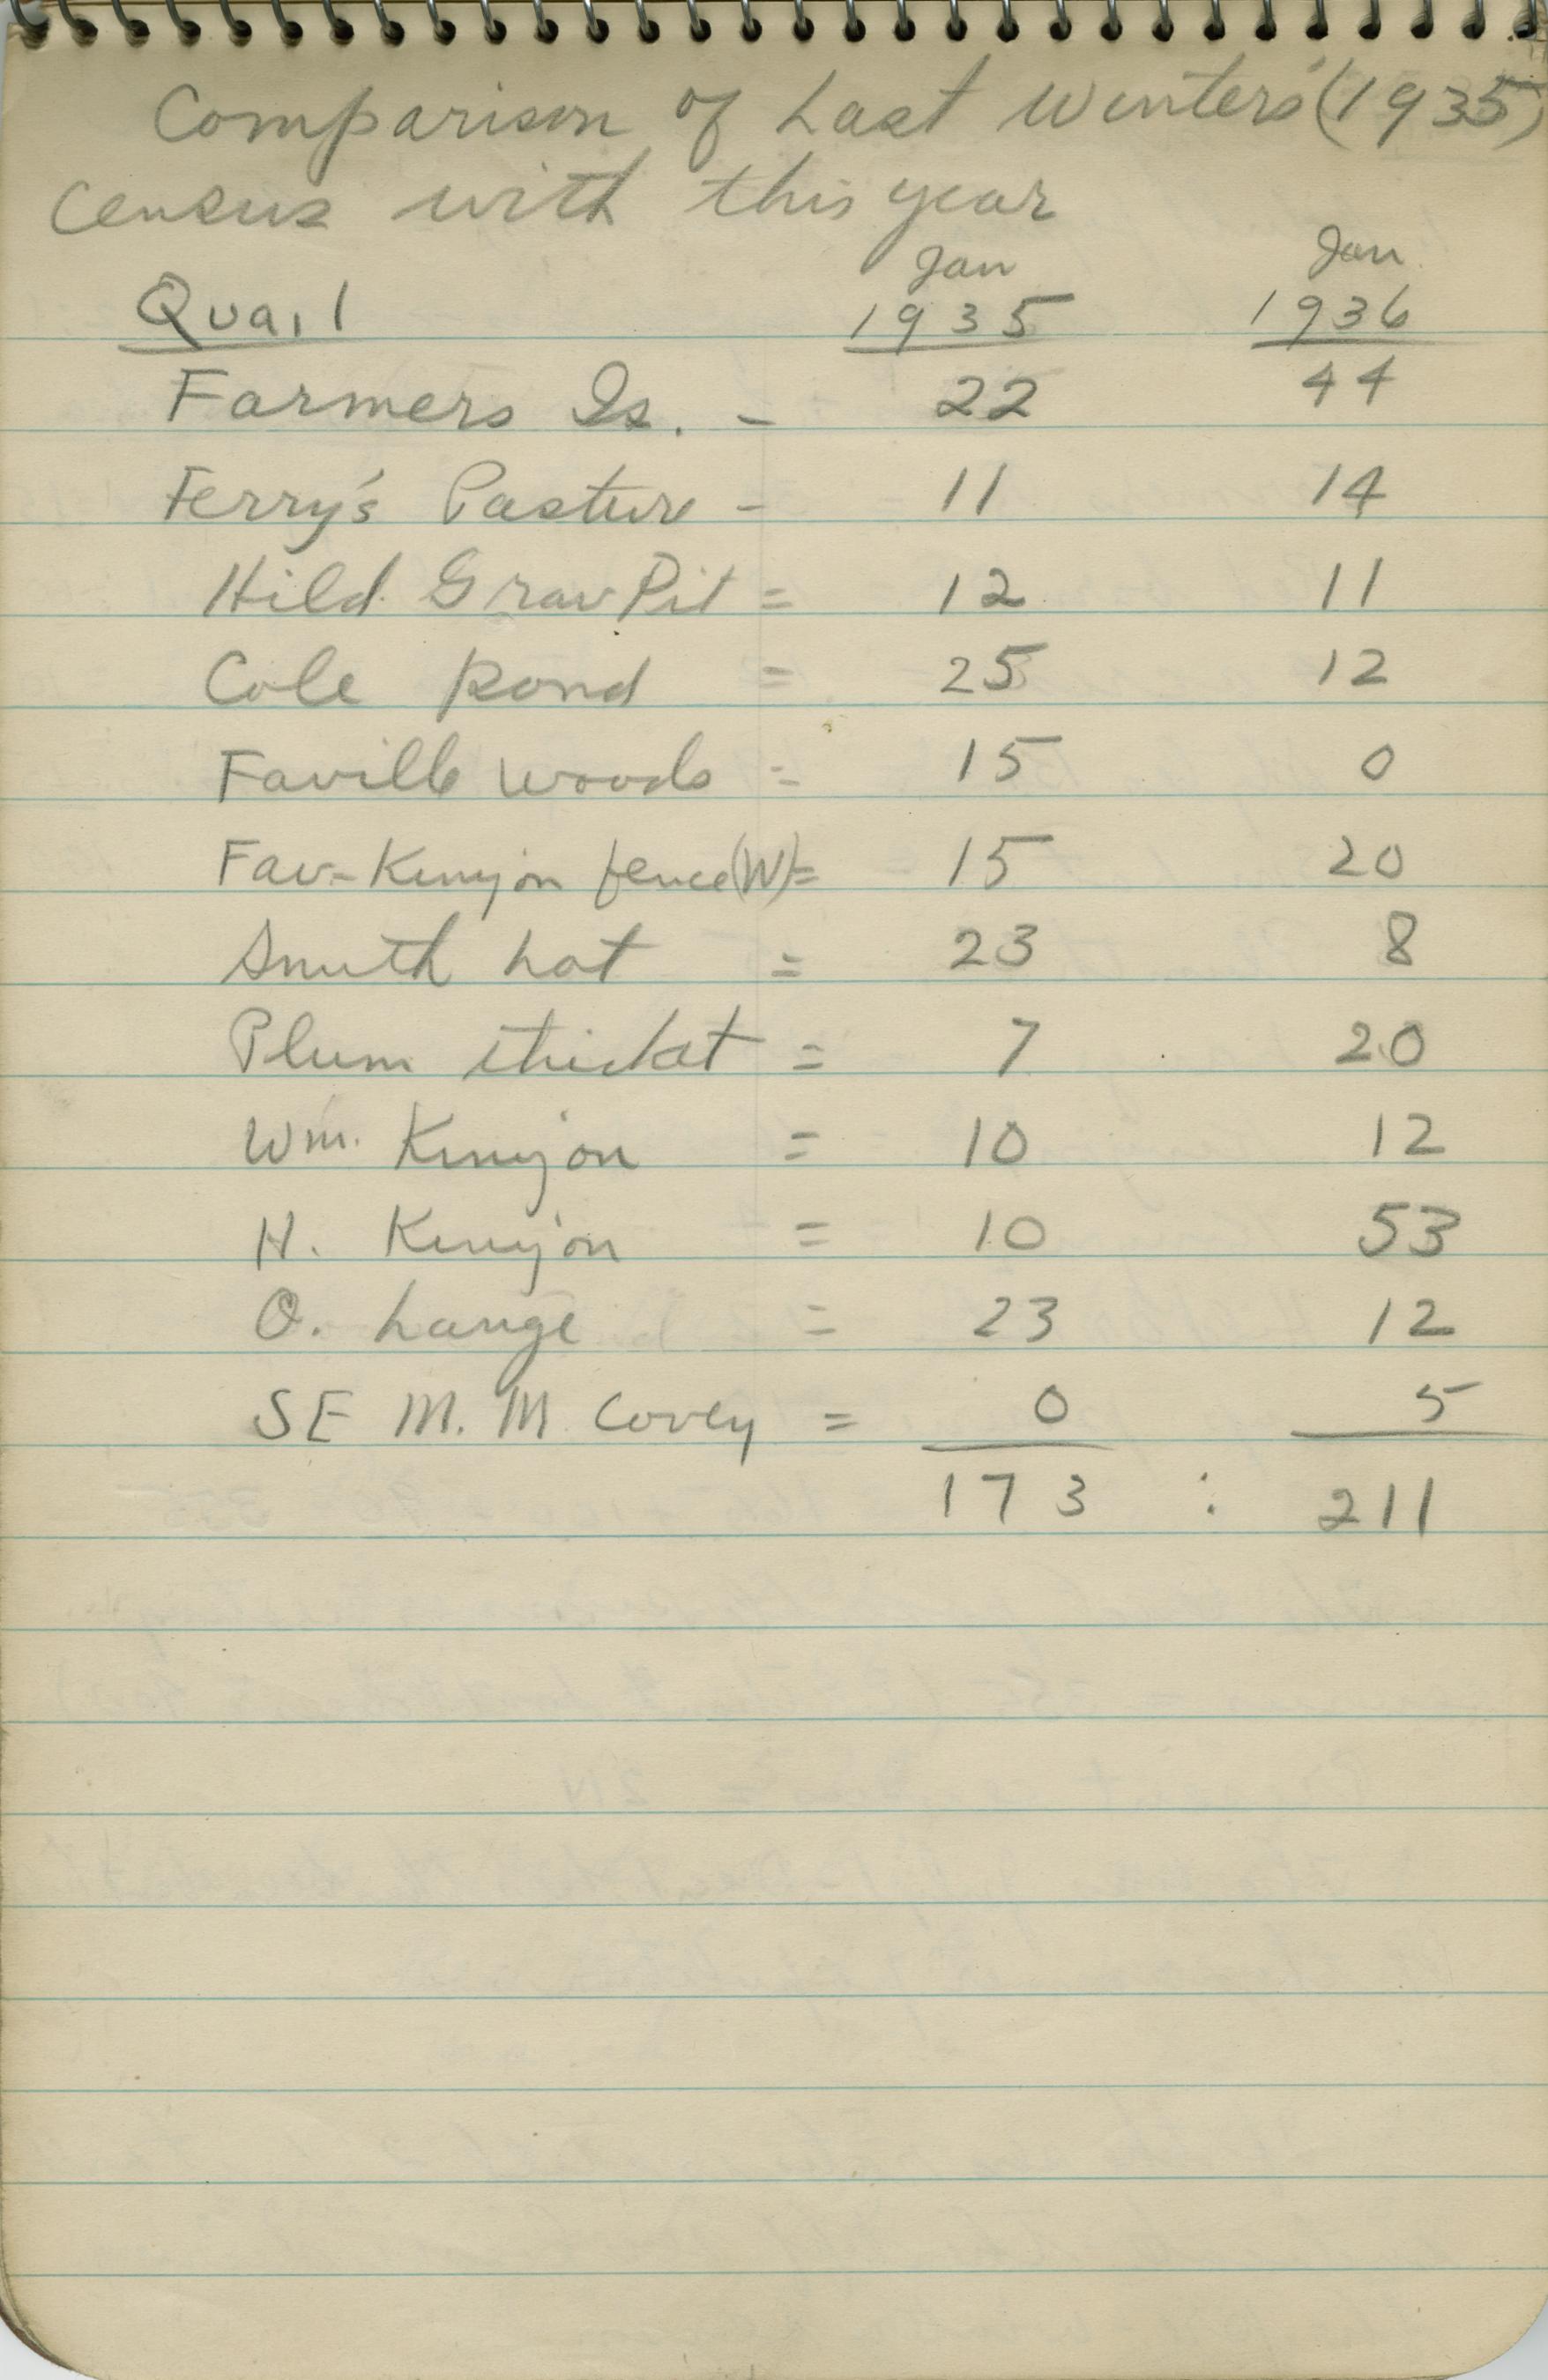 Comparison of Last Winters' (1935)
census with this year
Jan Jan
Quail 1935 1936
Farmers Is. - 22 44
Ferry's Pasture - 11 14
Hild. Grav Pit = 12 11
Cole Pond = 25 12
Faville Woods = 15 0
Fav-Kenyon fence (W) = 15 20
Smith Lot = 23 8
Plum thicket = 7 20
Wm. Kenyon = 10 12
H. Kenyon = 10 53
O. Lange = 23 12
SE M. M Covey = 0 5
173 : 211